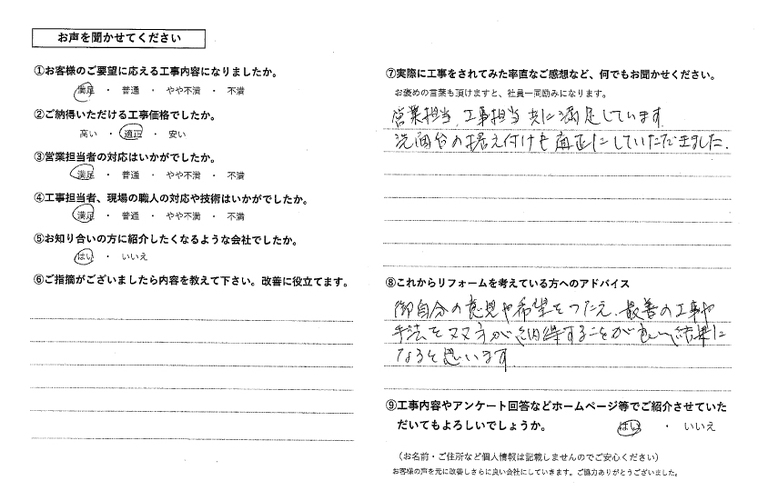 お声を聞かせてください
①お客様のご要望に応える工事内容になりましたか。
満足 ・ 普通 ・ やや不満 ・ 不満
②ご納得いただける工事価格でしたか。
高い ・ 適正 ・ 安い
③営業担当者の対応はいかがでしたか。
満足 ・ 普通 ・ やや不満 ・ 不満
④工事担当者、現場の職人の対応や技術はいかがでしたか。
満足 ・ 普通 ・ やや不満 ・ 不満
⑤お知り合いの方に紹介したくなるような会社でしたか。
はい ・ いいえ
⑥ご指摘がございましたら内容を教えて下さい。改善に役立てます。
⑦実際に工事をされてみた率直なご感想など、何でもお聞かせください。
お褒めの言葉も頂けますと、社員一同励みになります。
営業担当、工事担当 共に満足しています。
洗面台の据え付けも適正にしていただきました.
⑧これからリフォームを考えている方へのアドバイス
御自分の意見や希望をつたえ、最善の工事や
手法を双方が納得することが良い結果に
なると思います
⑨工事内容やアンケート回答などホームページ等でご紹介させていた
だいてもよろしいでしょうか。 はい ・ いいえ
（お名前・ご住所など個人情報は記載しませんのでご安心ください）
お客様の声を元に改善しさらに良い会社にしていきます。ご協力ありがとうございました。